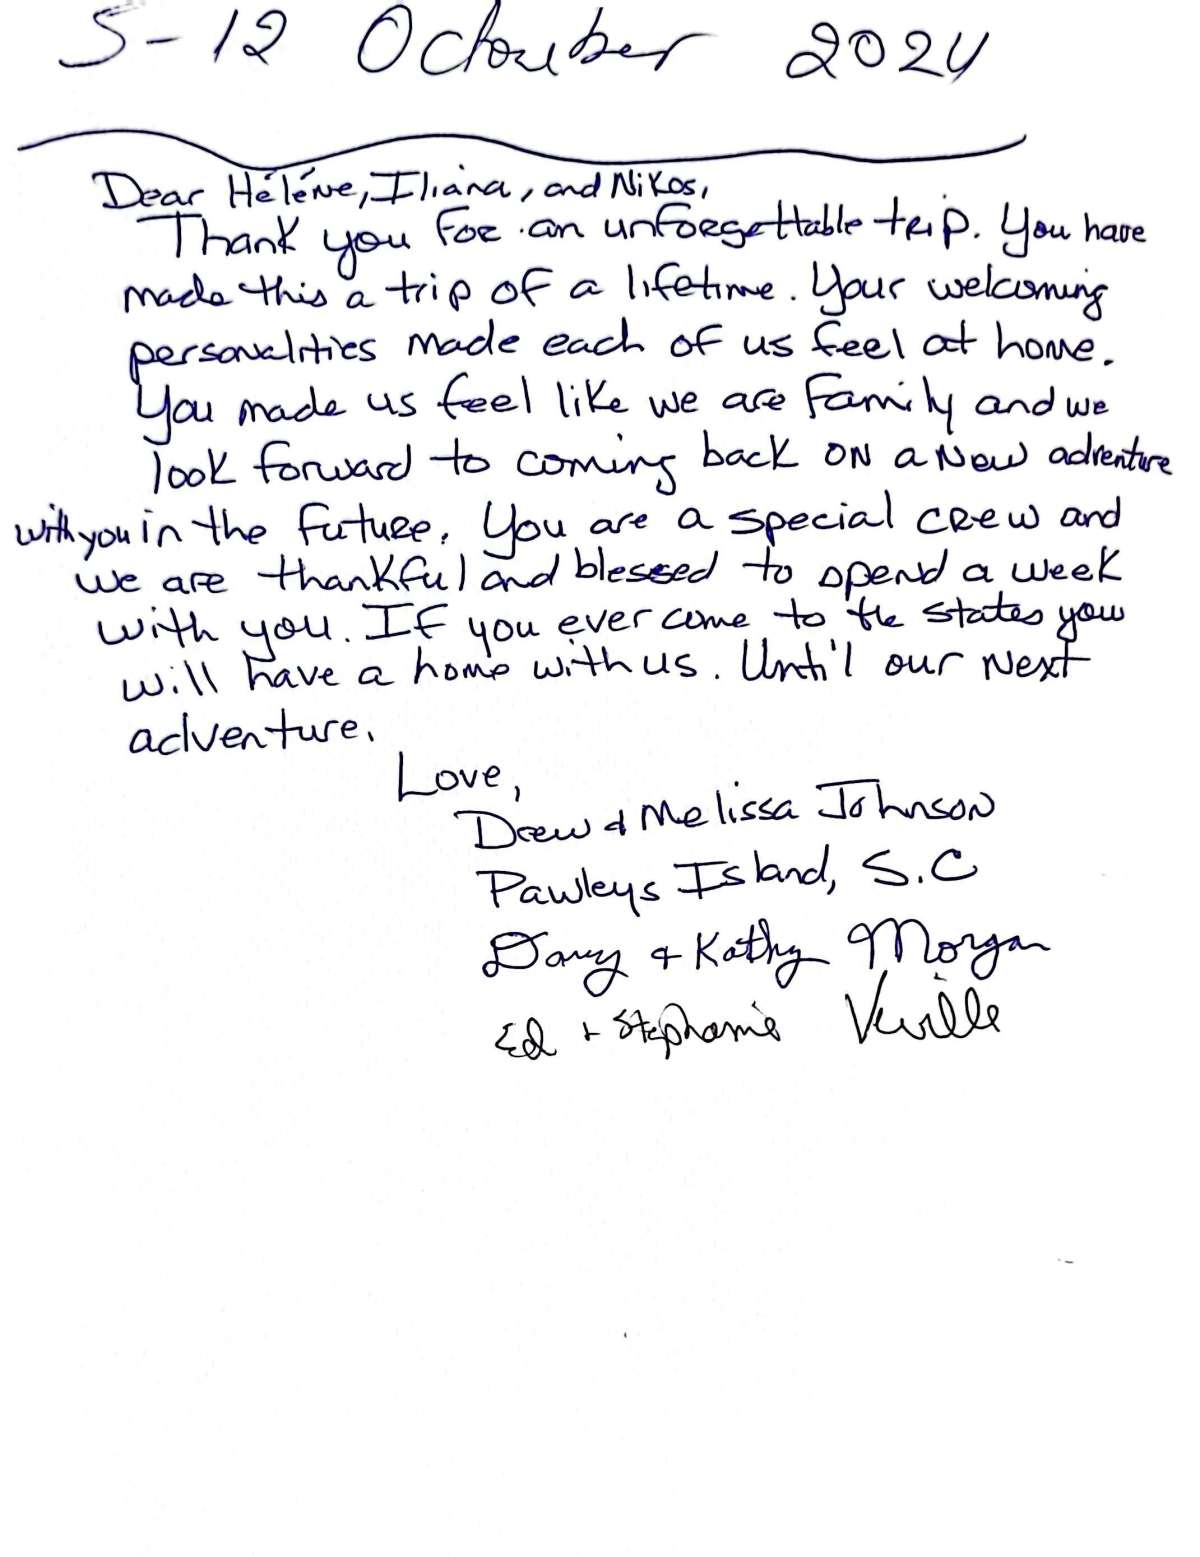 5-12 Octouber 2024
Dear Héléne, Iliana, and Nikos,
Thank you for an unforgettable trip. You have
made this a trip of a lifetime. Your welcoming
personalities made each of us feel at home.
You made us feel like we are family and we
look forward to coming back on a new adventure
with you in the future. You are a special crew and
we are thankful and blessed to spend a week
with you. If you ever come to the states you
will have a home with us. Until our next
adventure.
Love,
Drew & Melissa Johnson
Pawleys Island, S.C
& Kathy Morgan
Ed + Stephanie